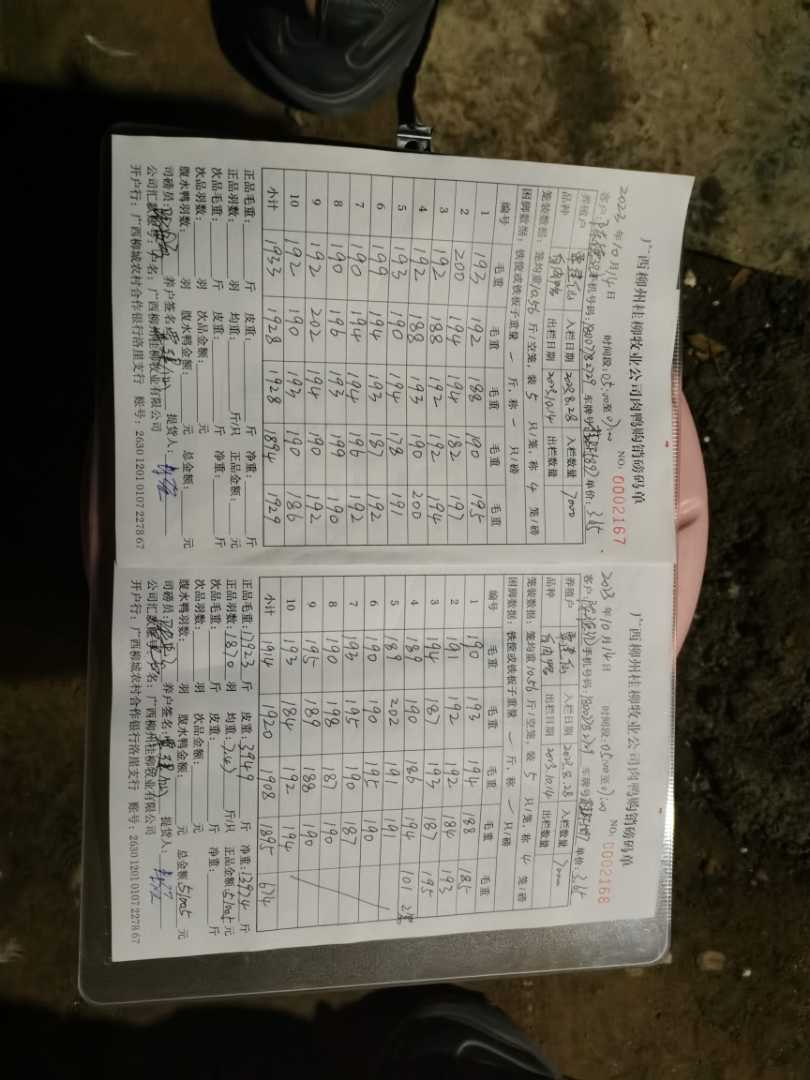 广西柳州桂柳牧业公司肉鸭购销磅码单
2023年10月14日 时间段:05:00至07:00 NO. 0002167
客户: 手机号码: 车牌号: 单价:3.65
养殖户 入栏日期 2023.8.28 入栏数量 7000
品种 白肉鸭 出栏日期 2023.10.14 出栏数量
笼装数据:笼均重10.56斤/空笼,装5只/笼,称4笼/磅
困脚数据:铁筐或铁板子重量 一 斤,称 一 只/磅
编号 毛重 毛重 毛重 毛重 毛重
1 193 192 188 190 195
2 200 194 194 182 197
3 192 188 192 192 194
4 192 188 193 190 200
5 193 190 194 178 191
6 199 194 193 187 192
7 190 194 194 196 192
8 190 196 193 199 190
9 192 202 194 190 192
10 192 190 193 190 186
小计 1933 1928 1928 1894 1929
正品毛重: 斤 皮重: 斤 净重: 斤
正品羽数: 羽 均重: 斤/只 正品金额: 元
次品毛重: 斤 皮重: 斤 净重: 斤
次品羽数: 羽 次品金额: 元
腹水鸭羽数: 羽 腹水鸭金额: 元 总金额: 元
司磅员: 养户签名: 提货人:
公司汇款账号:户名:广西柳州桂柳牧业有限公司
开户行:广西柳城农村合作银行洛崖支行 账号:2630 1201 0107 2278 67
广西柳州桂柳牧业公司肉鸭购销磅码单
2023年10月14日 时间段:05:00至07:00 NO. 0002168
客户: 手机号码: 车牌号: 单价:3.65
养殖户 入栏日期 2023.8.28 入栏数量 7000
品种 白肉鸭 出栏日期 2023.10.14 出栏数量
笼装数据:笼均重10.56斤/空笼,装5只/笼,称4笼/磅
困脚数据:铁筐或铁板子重量 一 斤,称 一 只/磅
编号 毛重 毛重 毛重 毛重 毛重
1 190 193 194 188 185
2 191 192 192 184 193
3 194 187 193 187 195
4 189 190 186 194 101 2只
5 189 202 191 191
6 190 190 195 190
7 193 195 190 187
8 190 198 187 190
9 195 189 188 190
10 193 184 192 194
小计 1914 1920 1908 1895 674
正品毛重:17923斤 皮重:3949斤 净重:13974斤
正品羽数:1870羽 均重:7.47斤/只 正品金额:51005元
次品毛重: 斤 皮重: 斤 净重: 斤
次品羽数: 羽 次品金额: 元
腹水鸭羽数: 羽 腹水鸭金额: 元 总金额:51005元
司磅员: 养户签名: 提货人:
公司汇款账号:户名:广西柳州桂柳牧业有限公司
开户行:广西柳城农村合作银行洛崖支行 账号:2630 1201 0107 2278 67